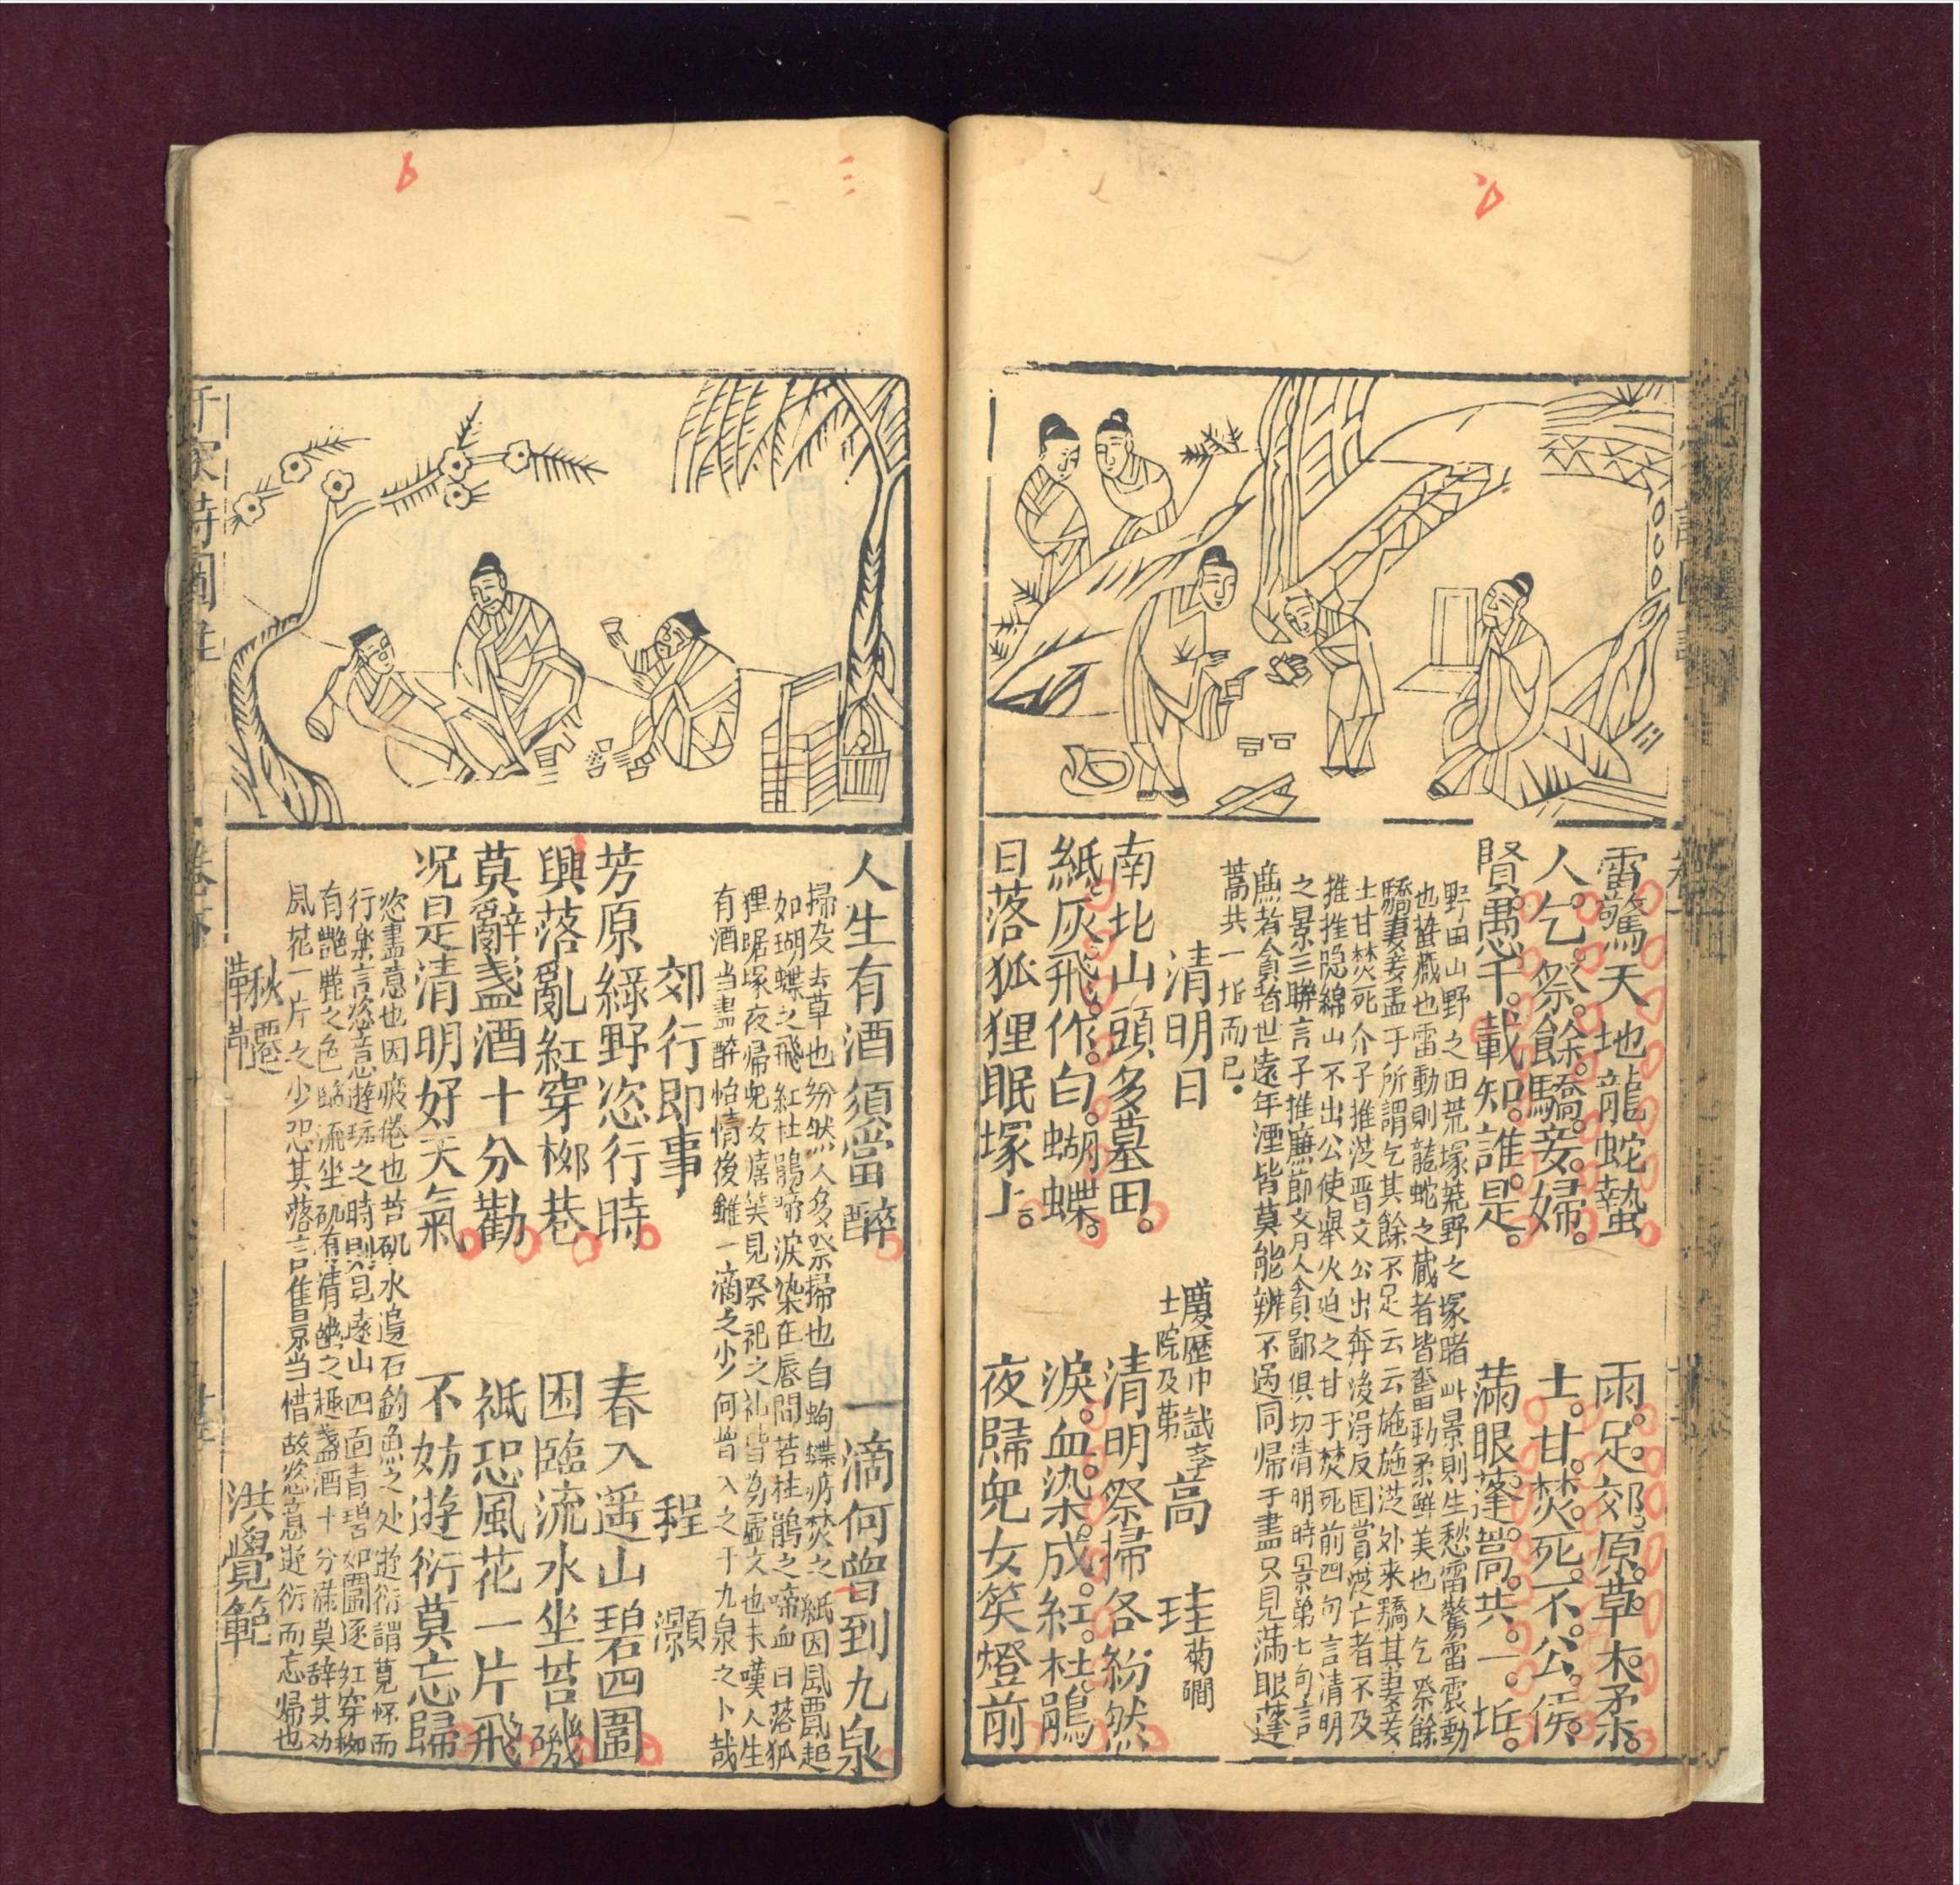 雷驚天地龍蛇蟄　雨足郊原草木柔
人乞祭餘驕妾婦　士甘焚死不公侯
賢愚千載知誰是　滿眼蓬蒿共一坵
野田山野之田荒塚荒野之塚睹此景則生愁雷驚雷震動
也蟄藏也雷動則龍蛇之藏者皆奮動柔鮮美也人乞祭餘
驕妻妾孟子所謂乞其餘不足云云施施從外來驕其妻妾
士甘焚死介子推從晋文公出奔後淂反囯賞從亡者不及
推推隠綿山不出公使舉火迫之甘于焚死前四句言清明
之景三聨言子推廉節文月人貪鄙俱切清明時景苐七句言
廉者貪者世遠年湮皆莫能辨不過同帰于盡只見滿眼蓬
蒿共一坵而已
清明日　慶歴巾試李士院及苐　高　珪菊磵
南北山頭多墓田　清明祭掃各紛然
紙灰飛作白蝴蝶　淚血染成紅杜鵑
日落狐狸眠塚上　夜歸兒女笑燈前
人生有酒須當醉　一滴何曾到九泉
掃及去草也紛然人多祭掃也白蝴蝶病焚之紙因風飄起
如瑚蝶之飛紅杜鵑啼淚染在唇間若杜鵑之啼血日落狐
狸踞塚夜帰兒女痴笑見祭祀之礼皆為虛文也未嘆人生
有酒当盡醉怡情後雖一滴之少何曾入之于九泉之卜哉
郊行即事　程　灝
芳原綠野恣行時　春入遥山碧四圍
興落亂紅穿柳巷　困臨流水坐苔磯
莫辭盞酒十分勸　祗恐風花一片飛
况是清明好天氣　不妨遊衍莫忘歸
恣盡意也因疲倦也苔矶水邉石釣魚之处遊衍謂寛怀而
行樂言恣意遊玩之時則見遠山四面青碧如圍逐红穿柳
有艶麗之色臨流坐矶有清幽之趣盞酒十分滿莫辞其劝
風花一片之少恐其落言佳景当惜故恣意遊衍而忘帰也
秋韆　洪覺範